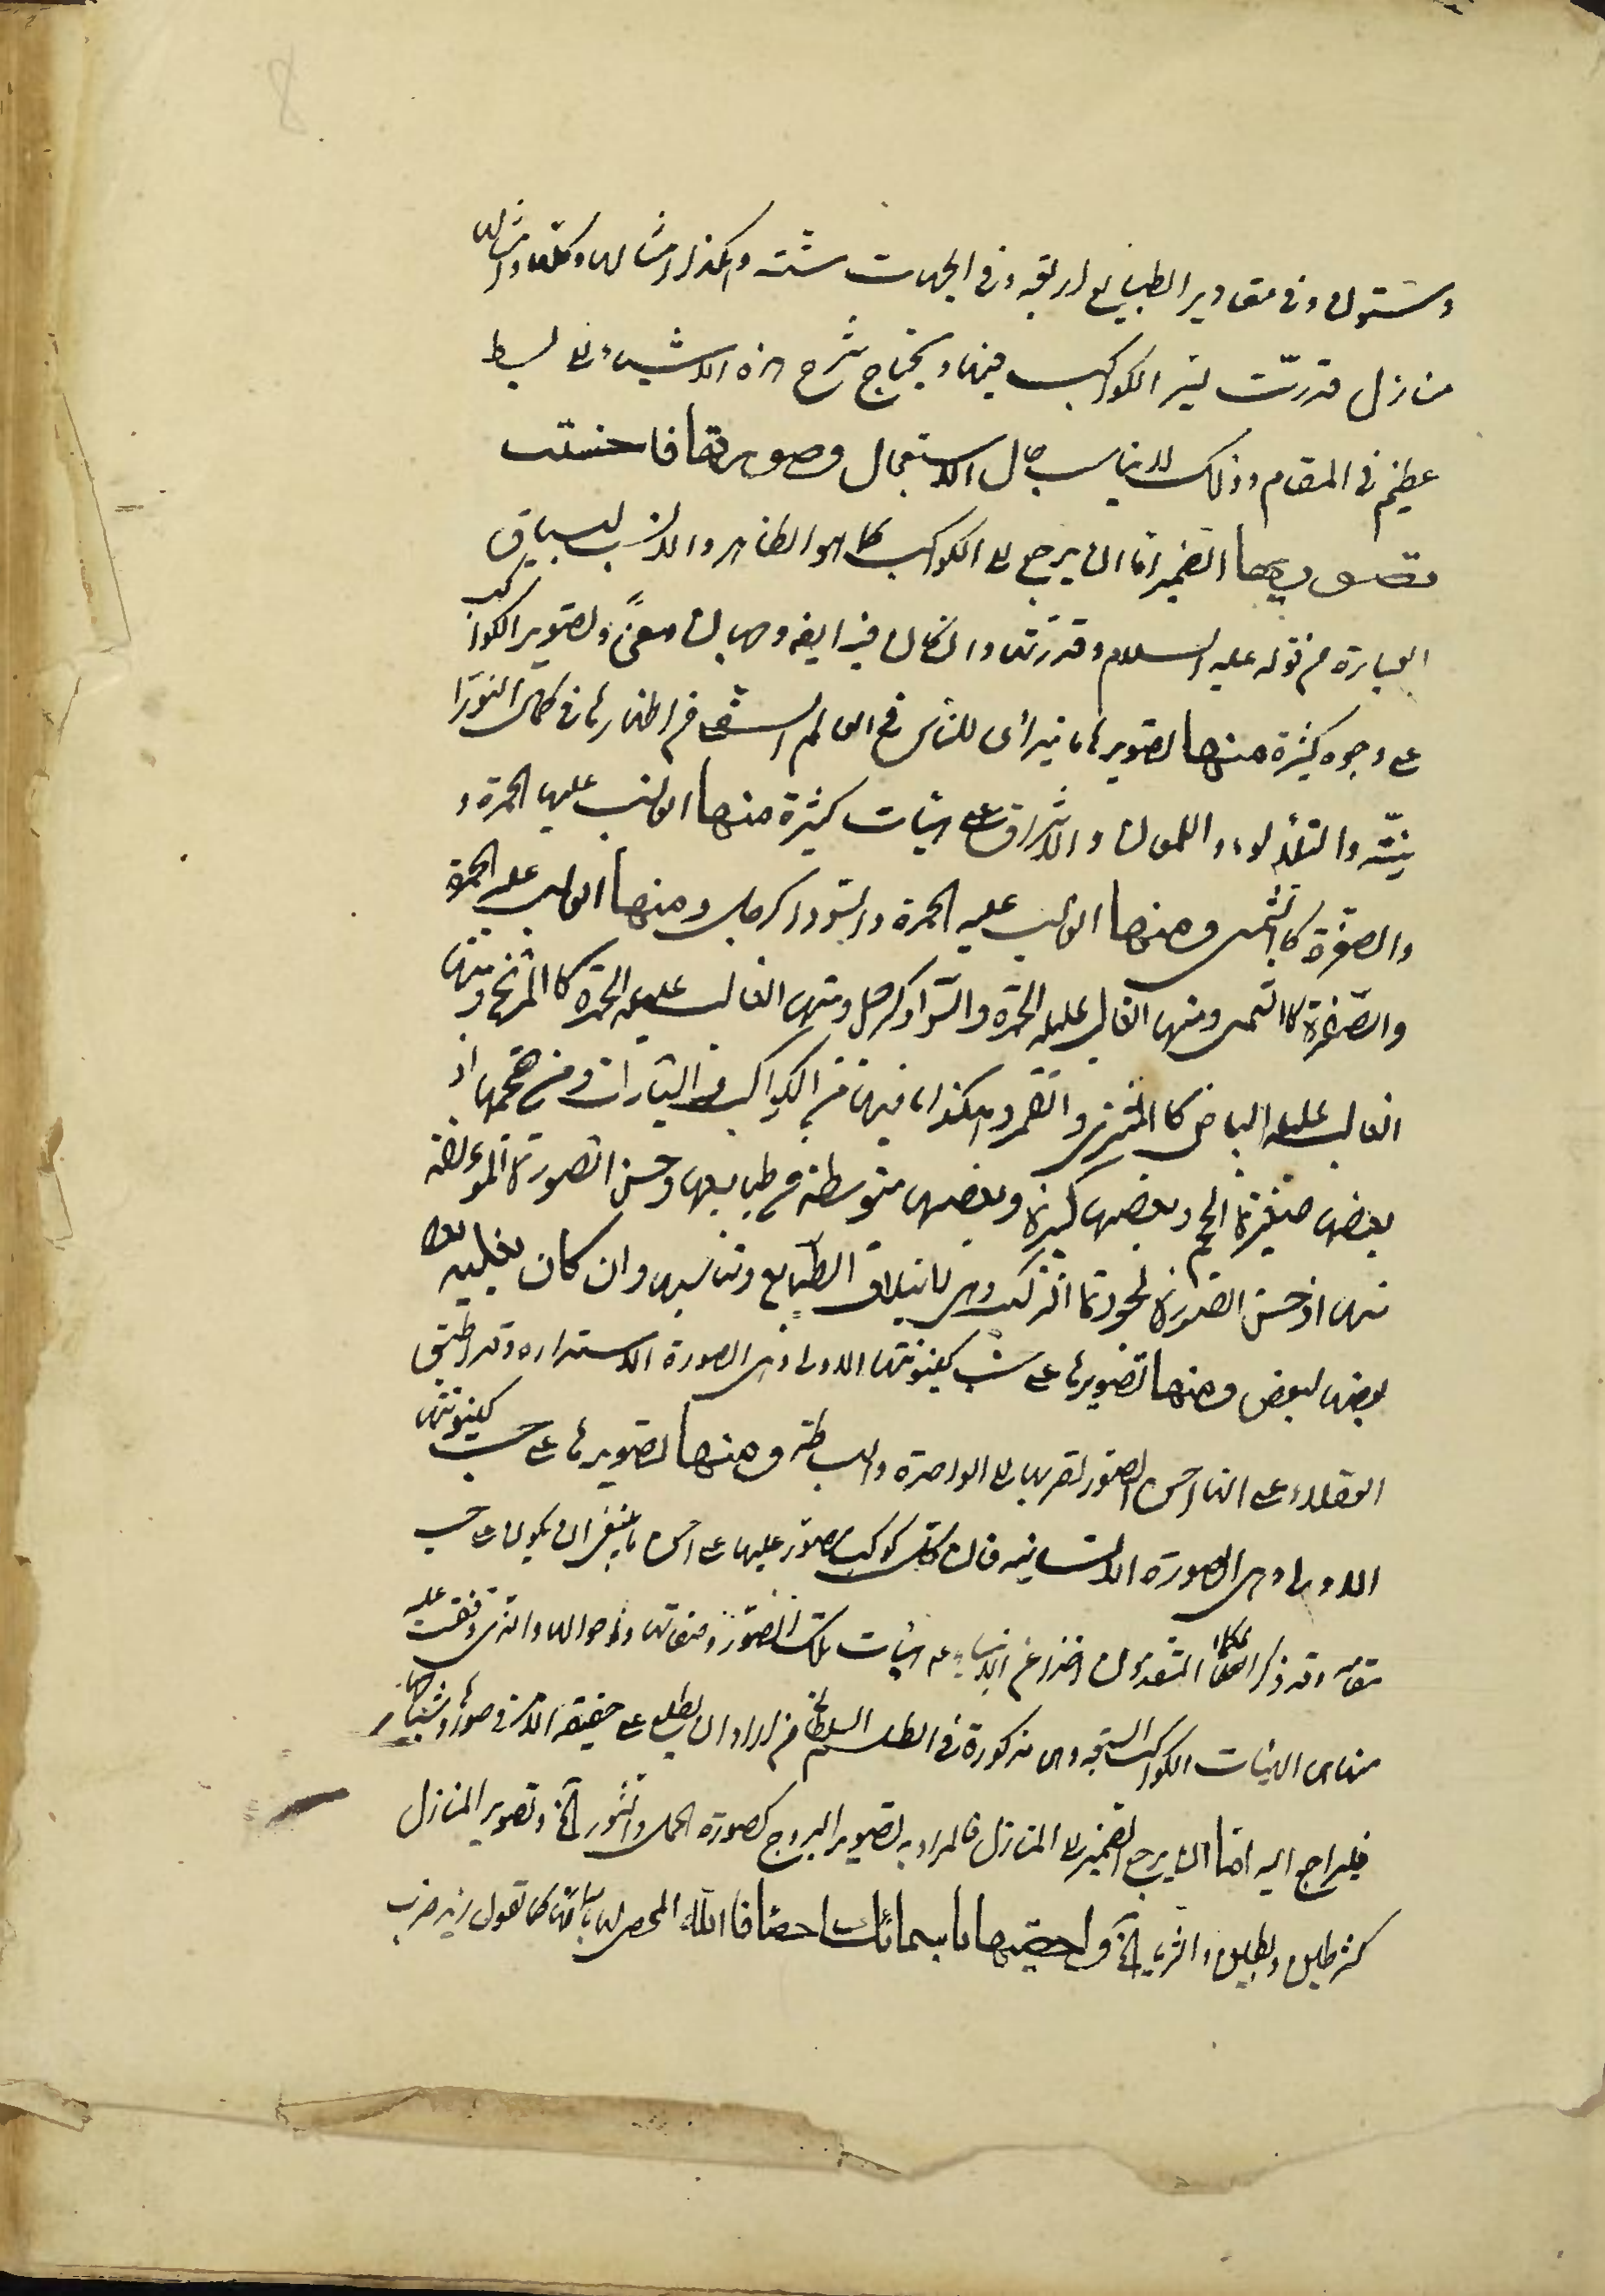 وستون وفي مقادير الطبايع اربعة وفي الجهات ستة وهكذا امثالها وكلها وامثالها
منازل قدرت سير الكواكب فيها ويحتاج شرح هذه الاشياء الى بسط
عظيم في المقام وذلك لا يناسب حال الاستعجال وصورتها فاحسنت
تصويرها الضمير اما ان يرجع الى الكواكب كما هو الظاهر والانسب لسياق
العبارة من قوله عليه السلام وقدرتها وان كان فيه ايضا وجهان معنى وتصوير الكواكب
على وجوه كثيرة منها تصويرها بما يتراءى للناس في العالم السفلي من اظهارها في كمال النورا
نية والتلألؤ واللمعان والاشراق على هيئات كثيرة منها الغالب عليها الحمرة و
والصفرة كالشمس ومنها الغالب عليه الحمرة والسواد كزحل ومنها الغالب عليه الحمرة
والصفرة كالشمس ومنها الغالب عليه الحمرة والسواد كزحل ومنها الغالب عليه الحمرة كالمريخ ومنها
الغالب عليه البياض كالمشتري والقمر وهكذا ما فيها من الكواكب والسيارات ومن حجمها اذ
بعضها صغيرة الحجم وبعضها كبيرة وبعضها متوسطة في طبايعها وحسن الصورة المؤلفة
منها اذ حسن الصورة لجودة التركيب وهي لايتلاف الطبايع وتناسبها وان كان بغلبة بعض
بعضها لبعض ومنها تصويرها على حسب كينونتها الاولى وهي الصورة الاستدارة وقد اطبق
العقلاء على انها احسن الصور لقربها الى الواحدة والبساطة ومنها تصويرها على حسب كينونتها
الاولى وهي الصورة الانسانية فان لكل كوكب صورة عليها على احسن ما ينبغي ان يكون على حسب
مقامه وقد ذكر الحكماء المتقدمون اخذا عن الانبياء هيئات تلك الصور وصفاتها واحوالها والذي وقفت عليه
منها هي الهيئات الكواكب السبعة وهي مذكورة في الطلسم السلطاني من اراد ان يطلع على حقيقة الامر في صورها وهيئاتها
فليراجع اليه اما ان يرجع الضمير الى المنازل فالمراد به تصوير البروج كصورة الحمل والثور الخ وتصوير المنازل
كشرطين وبطين والثريا الخ واحصيتها باسمائك احصاء فالله المحصي لها باسمائه كما تقول زيد ضرب